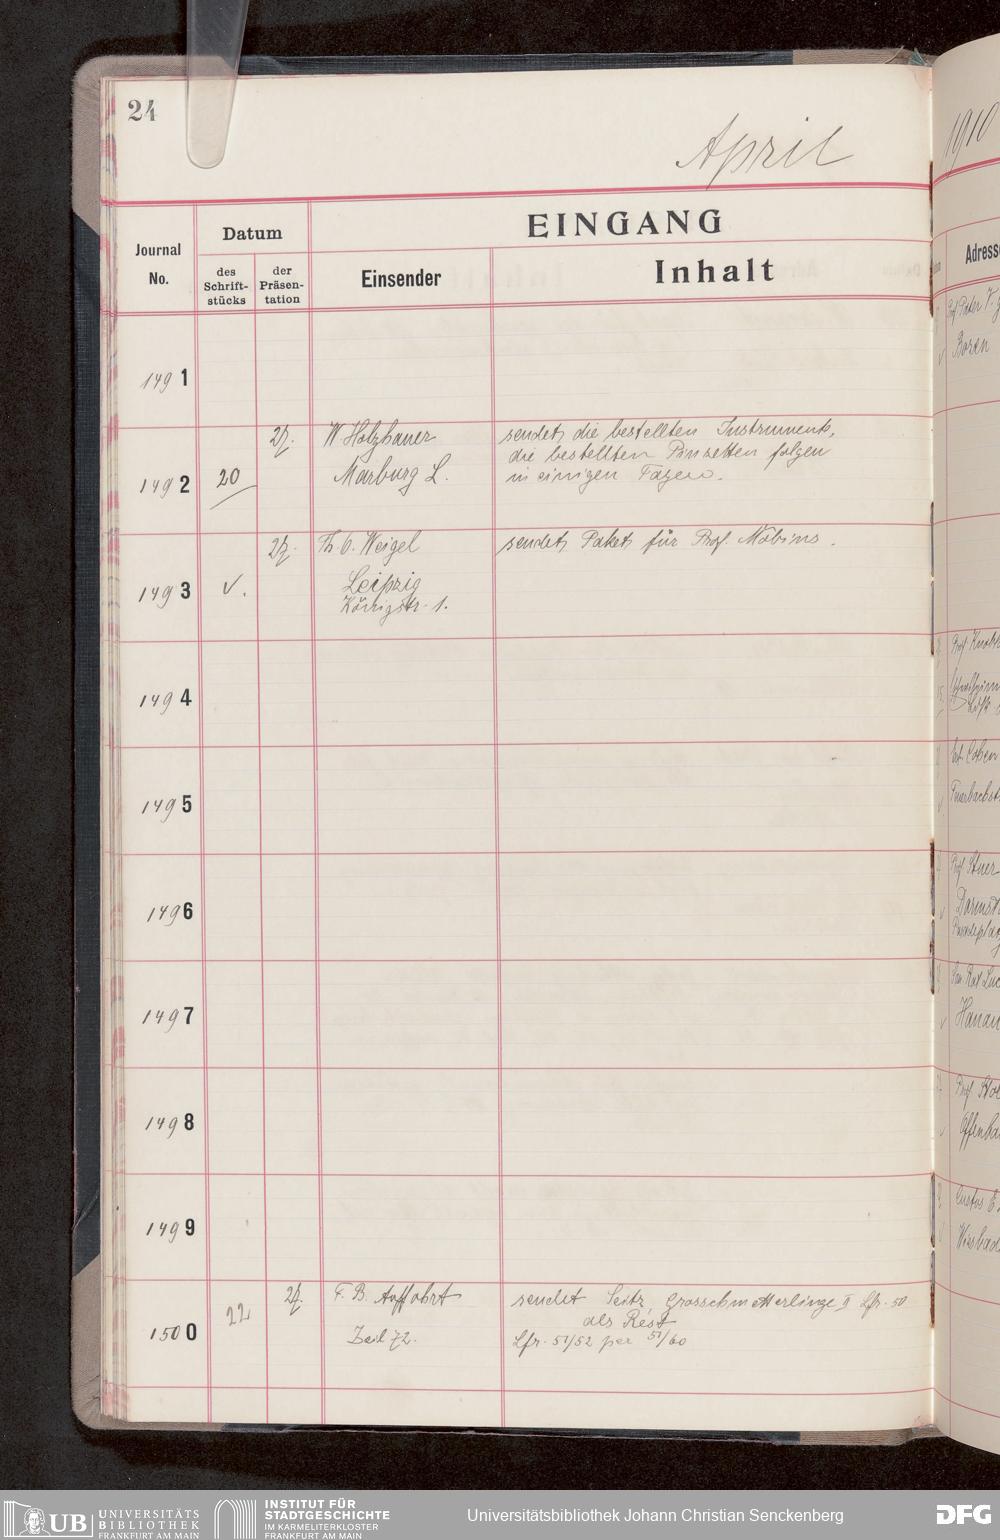 24
April
1910
EINGANG
Datum
Journal
No.
des
Schrift-
stücks
der
Präsen-
tation
Einsender
Inhalt
Adresse
1491
1492
20
27.
W Holzhauer
Marburg L.
sendet die bestellten Instrumente,
die bestellten Pinzetten folgen
in einigen Tagen.
1493
27.
Th. O. Weigel
Leipzig
Königstr. 1.
sendet Paket für Prof. Möbius.
1494
1495
1496
1497
1498
1499
1500
22
27.
F. B. Auffahrt
Zeil 72.
sendet Seitz, Grossschmetterlinge II Lfr. 50
als Rest
Lfr. 51/52 per 51/60
Bozen
Prof
Hanau
UB
UNIVERSITÄTS
BIBLIOTHEK
FRANKFURT AM MAIN
INSTITUT FÜR
STADTGESCHICHTE
IM KARMELITERKLOSTER
FRANKFURT AM MAIN
Universitätsbibliothek Johann Christian Senckenberg
DFG